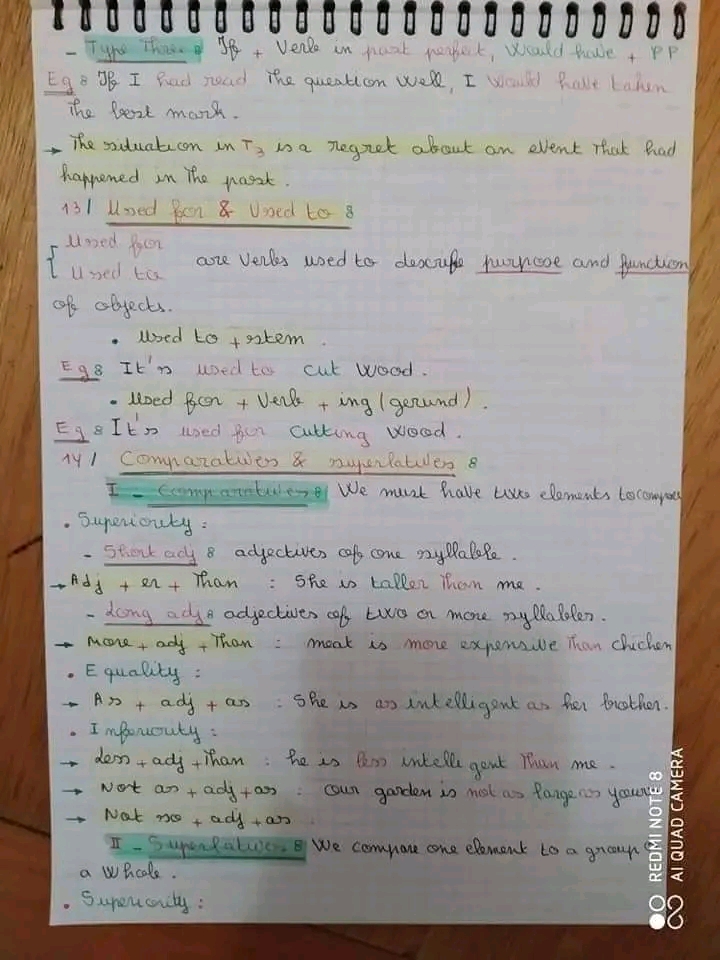 - Type Three : If + Verb in past perfect, Would have + PP
Eg : If I had read The question Well, I Would have taken
The best mark.
→ The situation in T3 is a regret about an event That had
happened in The past.
13/ Used for & Used to :
Used for
Used to are Verbs used to describe purpose and function
of objects.
• Used to + stem .
Eg : It's used to cut Wood.
• Used for + Verb + ing (gerund).
Eg : It's used for Cutting Wood.
14/ Comparatives & superlatives :
I - Comparatives : We must have two elements to compare
• Superiority :
- Short adj : adjectives of one syllable .
→ Adj + er + Than : She is taller Than me.
- Long adj : adjectives of two or more syllables.
→ More + adj + Than : meat is more expensive Than chicken
• Equality :
→ As + adj + as : She is as intelligent as her brother.
• Inferiority :
→ Less + adj + Than : he is less intelligent Than me .
→ Not as + adj + as : our garden is not as large as yours
→ Not so + adj + as
II - Superlatives : We compare one element to a group
a Whole .
• Superiority :
REDMI NOTE 8
AI QUAD CAMERA